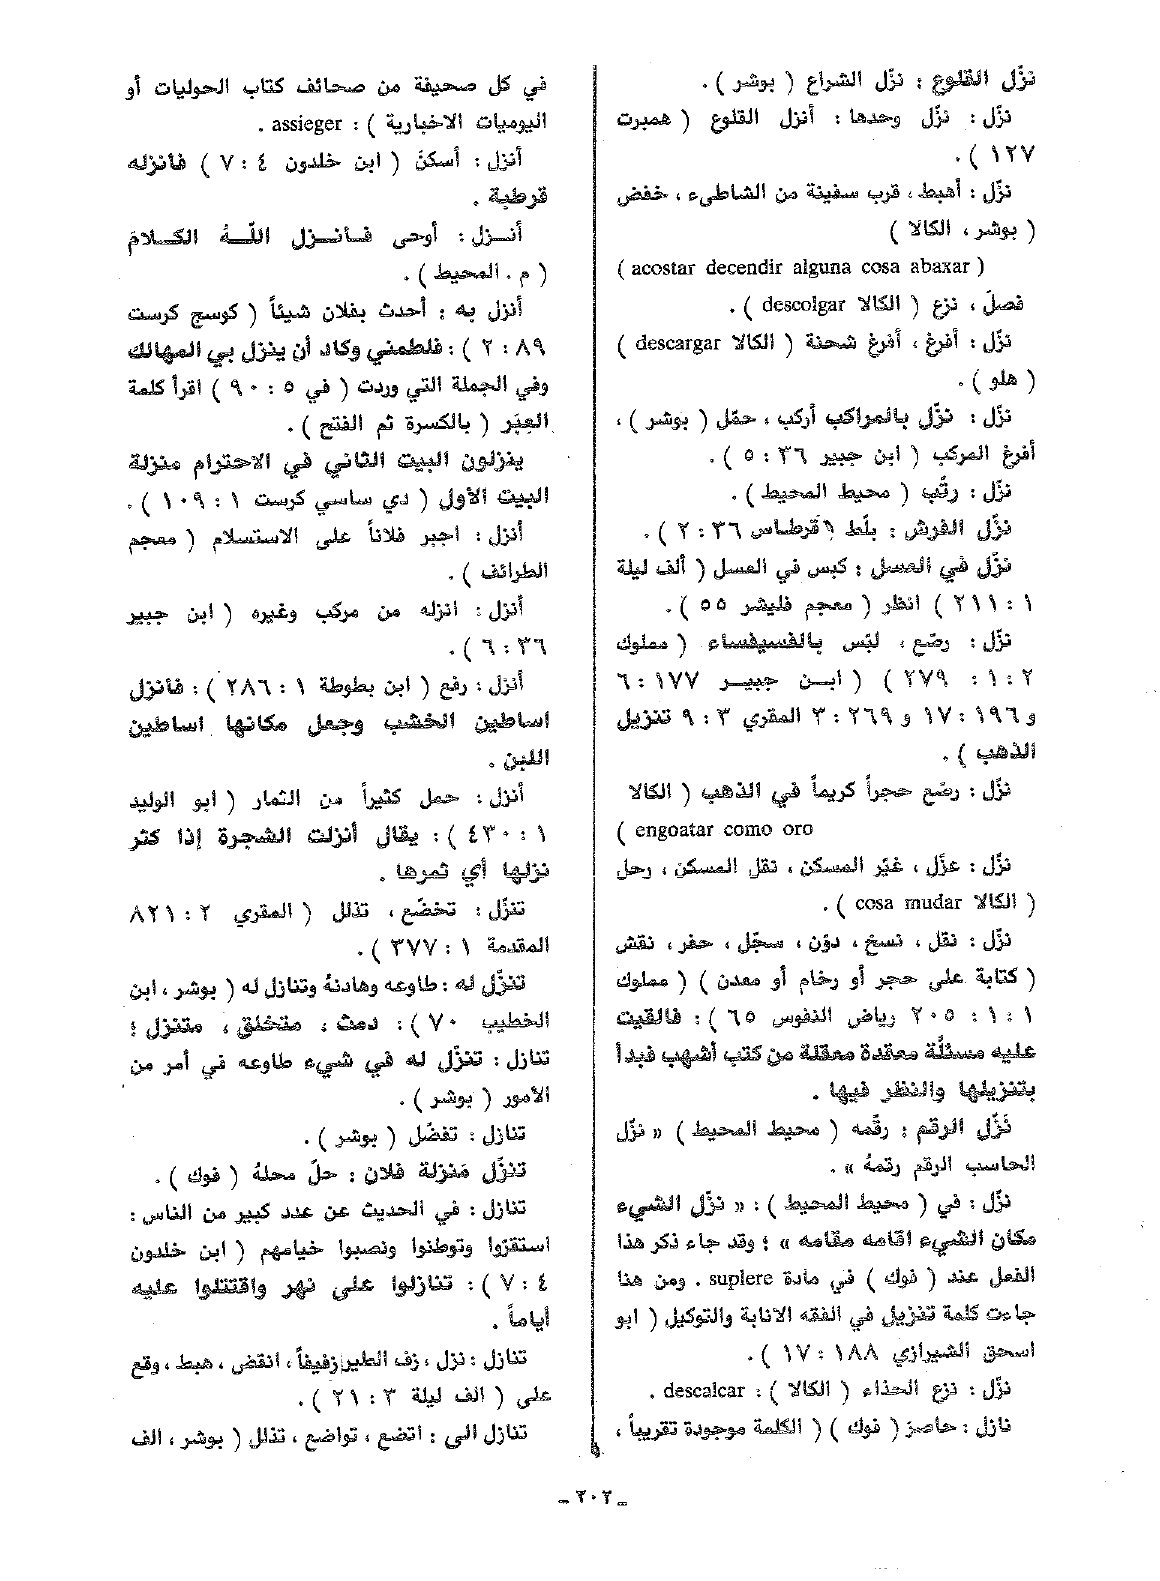 نزّل القلوع : نزّل الشراع ( بوشر ) .
نزّل : نزّل وحدها : أنزل القلوع ( همبرت
١٢٧ ) .
نزّل : أهبط ، قرب سفينة من الشاطىء ، خفض
( بوشر ، الكالا )
( acostar decendir alguna cosa abaxar )
فصلَ ، نزع ( الكالا descolgar ) .
نزّل : أفرغ ، أفرغ شحنة ( الكالا descargar )
( هلو ) .
نزّل : نزّل بالمراكب أركب ، حمّل ( بوشر ) ،
أفرغ المركب ( ابن جبير ٣٦ : ٥ ) .
نزّل : رتَّب ( محيط المحيط ) .
نزّل الفرش : بلّط ( قرطاس ٣٦ : ٢ ) .
نزّل في العسل : كبس في العسل ( ألف ليلة
١ : ٢١١ ) انظر ( معجم فليشر ٥٥ ) .
نزّل : رصّع ، لبّس بالفسيفساء ( مملوك
٢ : ١ : ٢٧٩ ) ( ابن جبير ١٧٧ : ٦
و ١٩٦ : ١٧ و ٢٦٩ : ٣ المقري ٣ : ٩ تنزيل
الذهب ) .
نزّل : رصّع حجراً كريماً في الذهب ( الكالا
engoatar como oro )
نزّل : عزّل ، غيّر المسكن ، نقل المسكن ، رحل
( الكالا cosa mudar ) .
نزّل : نقل ، نسخ ، دوّن ، سجّل ، حفر ، نقش
( كتابة على حجر أو رخام أو معدن ) ( مملوك
١ : ١ : ٢٠٥ رياض النفوس ٦٥ ) : فالقيت
عليه مسئلة معقدة معقلة من كتب أشهب فبدأ
بتنزيلها والنظر فيها .
نَزّل الرقم : رقَّمه ( محيط المحيط ) « نزّل
الحاسب الرقم رقمهُ » .
نزّل : في ( محيط المحيط ) : « نزّل الشيء
مكان الشيء اقامه مقامه » ؛ وقد جاء ذكر هذا
الفعل عند ( فوك ) في مادة suplere . ومن هنا
جاءت كلمة تنزيل في الفقه الانابة والتوكيل ( ابو
اسحق الشيرازي ١٨٨ : ١٧ ) .
نزّل : نزع الحذاء ( الكالا ) : descalcar .
نازل : حاصرَ ( فوك ) ( الكلمة موجودة تقريباً ،
في كل صحيفة من صحائف كتاب الحوليات أو
اليوميات الاخبارية ) : assieger .
أنزل : أسكنَ ( ابن خلدون ٤ : ٧ ) فانزله
قرطبة .
أنــزل : أوحى فــانــزل اللّــهُ الكــلامَ
( م . المحيط ) .
أنزل به : أحدث بفلان شيئاً ( كوسج كرست
٨٩ : ٢ ) : فلطمني وكاد أن ينزل بي المهالك
وفي الجملة التي وردت ( في ٥ : ٩٠ ) اقرأ كلمة
العِبَر ( بالكسرة ثم الفتح ) .
ينزلون البيت الثاني في الاحترام منزلة
البيت الأول ( دي ساسي كرست ١ : ١٠٩ ) .
أنزل : اجبر فلاناً على الاستسلام ( معجم
الطرائف ) .
أنزل : انزله من مركب وغيره ( ابن جبير
٣٦ : ٦ ) .
أنزل : رفع ( ابن بطوطة ١ : ٢٨٦ ) : فأنزل
اساطين الخشب وجعل مكانها اساطين
اللبن .
أنزل : حمل كثيراً من الثمار ( ابو الوليد
١ : ٤٣٠ ) : يقال أنزلت الشجرة إذا كثر
نزلها أي ثمرها .
تنزَّل : تخضّع ، تذلل ( المقري ٢ : ٨٢١
المقدمة ١ : ٣٧٧ ) .
تنزّل له : طاوعه وهادنهُ وتنازل له ( بوشر ، ابن
الخطيب ٧٠ ) : دمث ، متخلق ، متنزل ؛
تنازل : تنزّل له في شيء طاوعه في أمر من
الأمور ( بوشر ) .
تنازل : تفضّل ( بوشر ) .
تنزّل مَنزلة فلان : حلّ محلهُ ( فوك ) .
تنازل : في الحديث عن عدد كبير من الناس :
استقرّوا وتوطنوا ونصبوا خيامهم ( ابن خلدون
٤ : ٧ ) : تنازلوا على نهر واقتتلوا عليه
أياماً .
تنازل : نزل ، زف الطير زفيفاً ، انقض ، هبط ، وقع
على ( الف ليلة ٣ : ٢١ ) .
تنازل الى : اتضع ، تواضع ، تذلل ( بوشر ، الف
ـ ٢٠٢ ـ